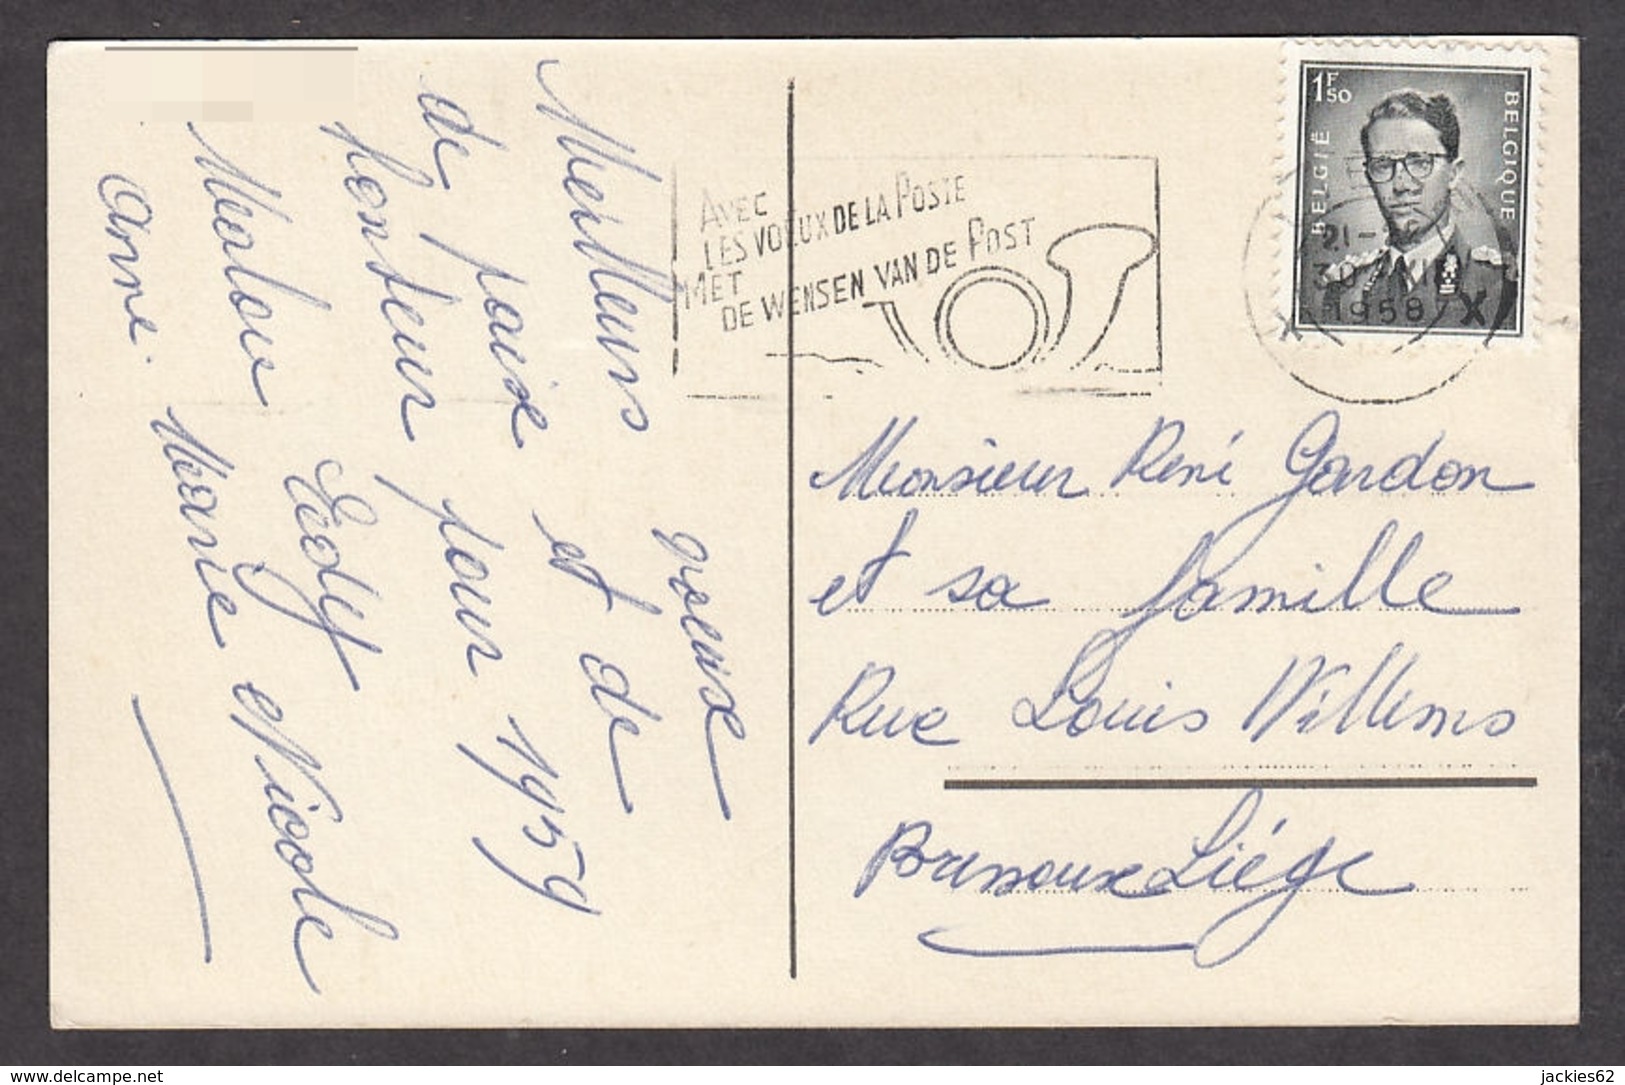 Meilleurs voeux
de paix et de
bonheur pour 1959
Malou Eddy Nicole
Anne. Marie
AVEC
LES VOEUX DE LA POSTE
MET
DE WENSEN VAN DE POST
1F50
BELGIË
BELGIQUE
1958
X X
Monsieur René Gardon
et sa famille
Rue Louis Willems
Bressoux Liége
www.delcampe.net
jackies62